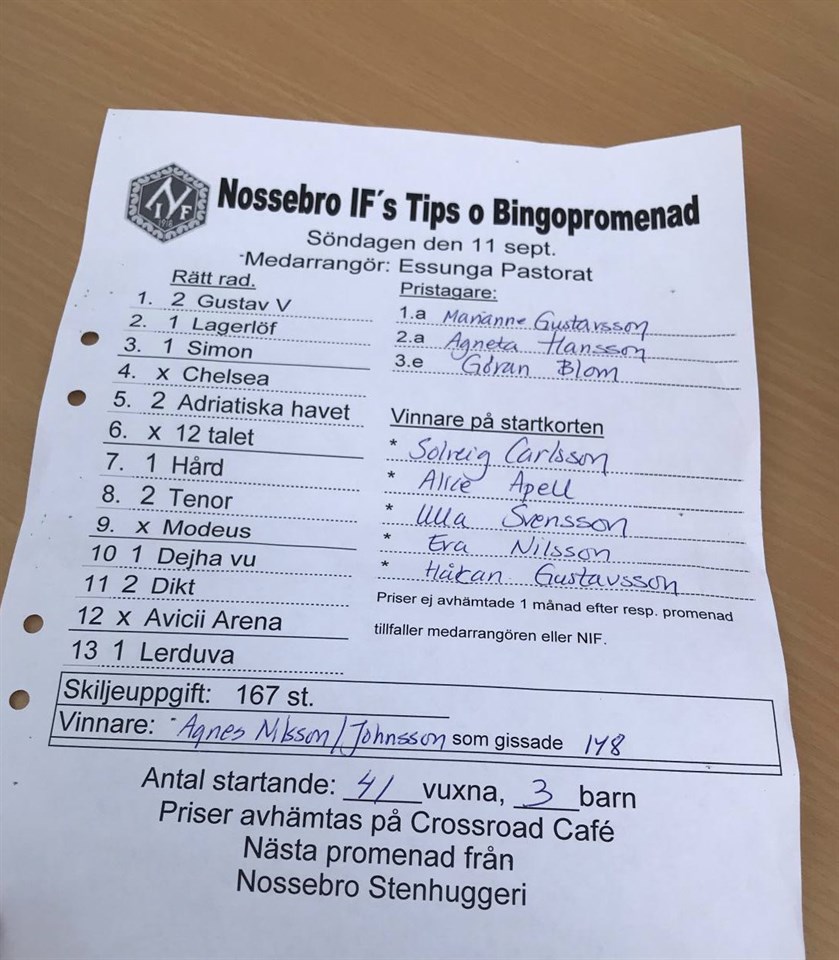 Nossebro IF´s Tips o Bingopromenad
Söndagen den 11 sept.
Medarrangör: Essunga Pastorat
Rätt rad.
1. 2 Gustav V
2. 1 Lagerlöf
3. 1 Simon
4. x Chelsea
5. 2 Adriatiska havet
6. x 12 talet
7. 1 Hård
8. 2 Tenor
9. x Modeus
10 1 Dejha vu
11 2 Dikt
12 x Avicii Arena
13 1 Lerduva
Pristagare:
1.a Marianne Gustavsson
2.a Agneta Hansson
3.e Göran Blom
Vinnare på startkorten
* Solveig Carlsson
* Alice Apell
* Ulla Svensson
* Eva Nilsson
* Håkan Gustavsson
Priser ej avhämtade 1 månad efter resp. promenad
tillfaller medarrangören eller NIF.
Skiljeuppgift: 167 st.
Vinnare: Agnes Nilsson/Johnsson som gissade 148
Antal startande: 41 vuxna, 3 barn
Priser avhämtas på Crossroad Café
Nästa promenad från
Nossebro Stenhuggeri